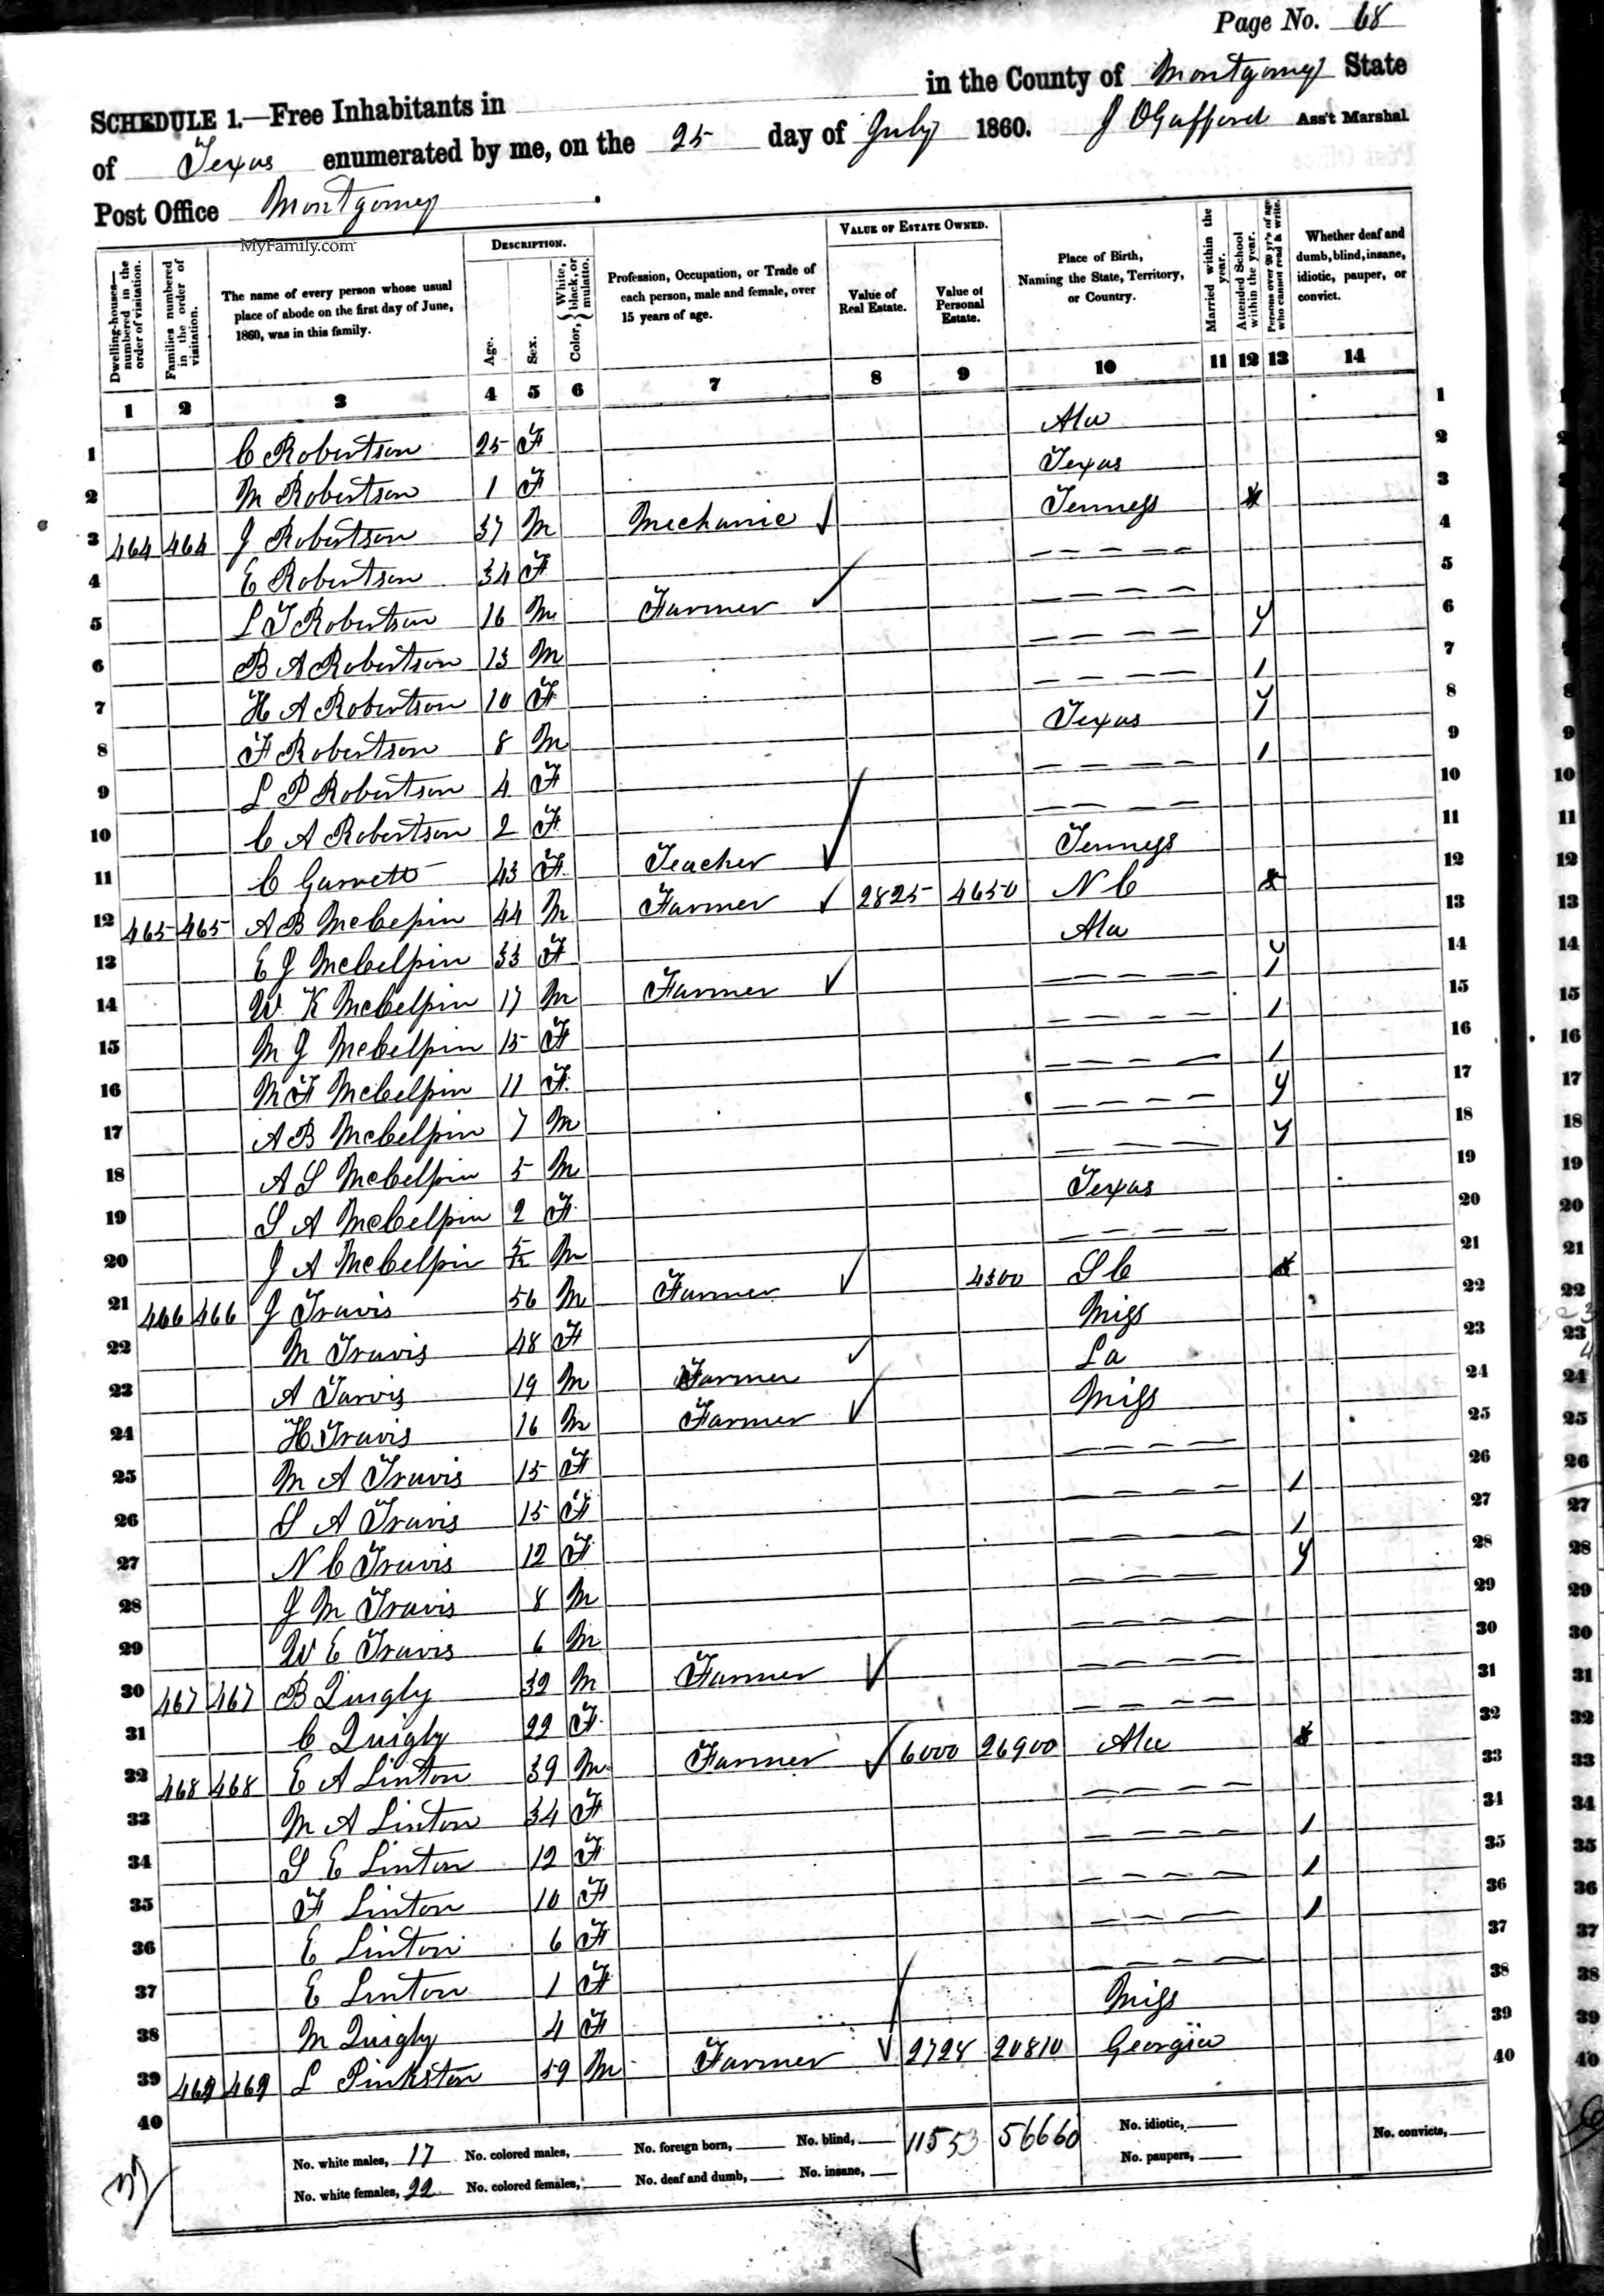 Page No. 68
SCHEDULE 1.—Free Inhabitants in in the County of Montgomery State
of Texas enumerated by me, on the 25 day of July 1860. J O Gafford Ass't Marshal
Post Office Montgomery
MyFamily.com
Dwelling-houses—numbered in the order of visitation.
Families numbered in the order of visitation.
The name of every person whose usual place of abode on the first day of June, 1860, was in this family.
DESCRIPTION.
Age.
Sex.
Color, White, black, or mulatto.
Profession, Occupation, or Trade of each person, male and female, over 15 years of age.
VALUE OF ESTATE OWNED.
Value of Real Estate.
Value of Personal Estate.
Place of Birth, Naming the State, Territory, or Country.
Married within the year.
Attended School within the year.
Persons over 20 y'rs of age who cannot read & write.
Whether deaf and dumb, blind, insane, idiotic, pauper, or convict.
1 2 3 4 5 6 7 8 9 10 11 12 13 14
1 C Robertson 25 F Ala 1
2 M Robertson 1 F Texas 2
3 464 464 J Robertson 37 M Mechanic Tenness 3
4 E Robertson 34 F — — — — 4
5 L T Robertson 16 M Farmer — — — — 5
6 B A Robertson 13 M — — — — 6
7 H A Robertson 10 F — — — — 1 7
8 F Robertson 8 M Texas 8
9 L P Robertson 4 F — — — — 1 9
10 C A Robertson 2 F — — — — 10
11 C Garrett 43 F Teacher Tenness 11
12 465 465 A B McCepin 44 M Farmer 2825 4650 N C 12
13 E J McCelpin 33 F Ala 13
14 W K McCelpin 17 M Farmer — — — — 14
15 M J McCelpin 15 F — — — — 1 15
16 M F McCelpin 11 F — — — — 1 16
17 A B McCelpin 7 M — — — — 17
18 A S McCelpin 5 M — — — 18
19 S A McCelpin 2 F Texas 19
20 J A McCelpin 5/12 M — — — — 20
21 466 466 J Travis 56 M Farmer 4300 S C 21
22 M Travis 48 F Miss 22
23 A Tarvis 19 M Farmer La 23
24 H Travis 16 M Farmer Miss 24
25 M A Travis 15 F — — — — 25
26 S A Travis 15 F — — — — 1 26
27 N C Travis 12 F — — — — 1 27
28 J M Travis 8 M — — — — 28
29 W E Travis 6 M — — — — 29
30 467 467 B Quigly 32 M Farmer — — — — 30
31 C Quigly 22 F — — — — 31
32 468 468 E A Linton 39 M Farmer 6000 26900 Ala 32
33 M A Linton 34 F — — — — 33
34 S E Linton 12 F — — — — 1 34
35 F Linton 10 F — — — — 1 35
36 E Linton 6 F — — — — 1 36
37 E Linton 1 F — — — — 37
38 M Quigly 4 F Miss 38
39 469 469 L Pinkston 59 M Farmer 2728 20810 Georgia 39
40 40
No. white males, 17 No. colored males, No. foreign born, No. blind, 11553 56660 No. idiotic, No. convicts,
No. white females, 22 No. colored females, No. deaf and dumb, No. insane, No. paupers,